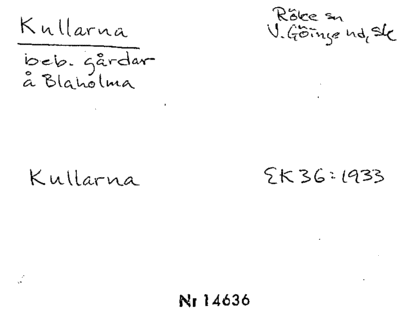 Kullarna
Röke sn
V. Göinge hd, Sk
beb. gårdar
å Blaholma
Kullarna
EK 36:1933
Nr 14636